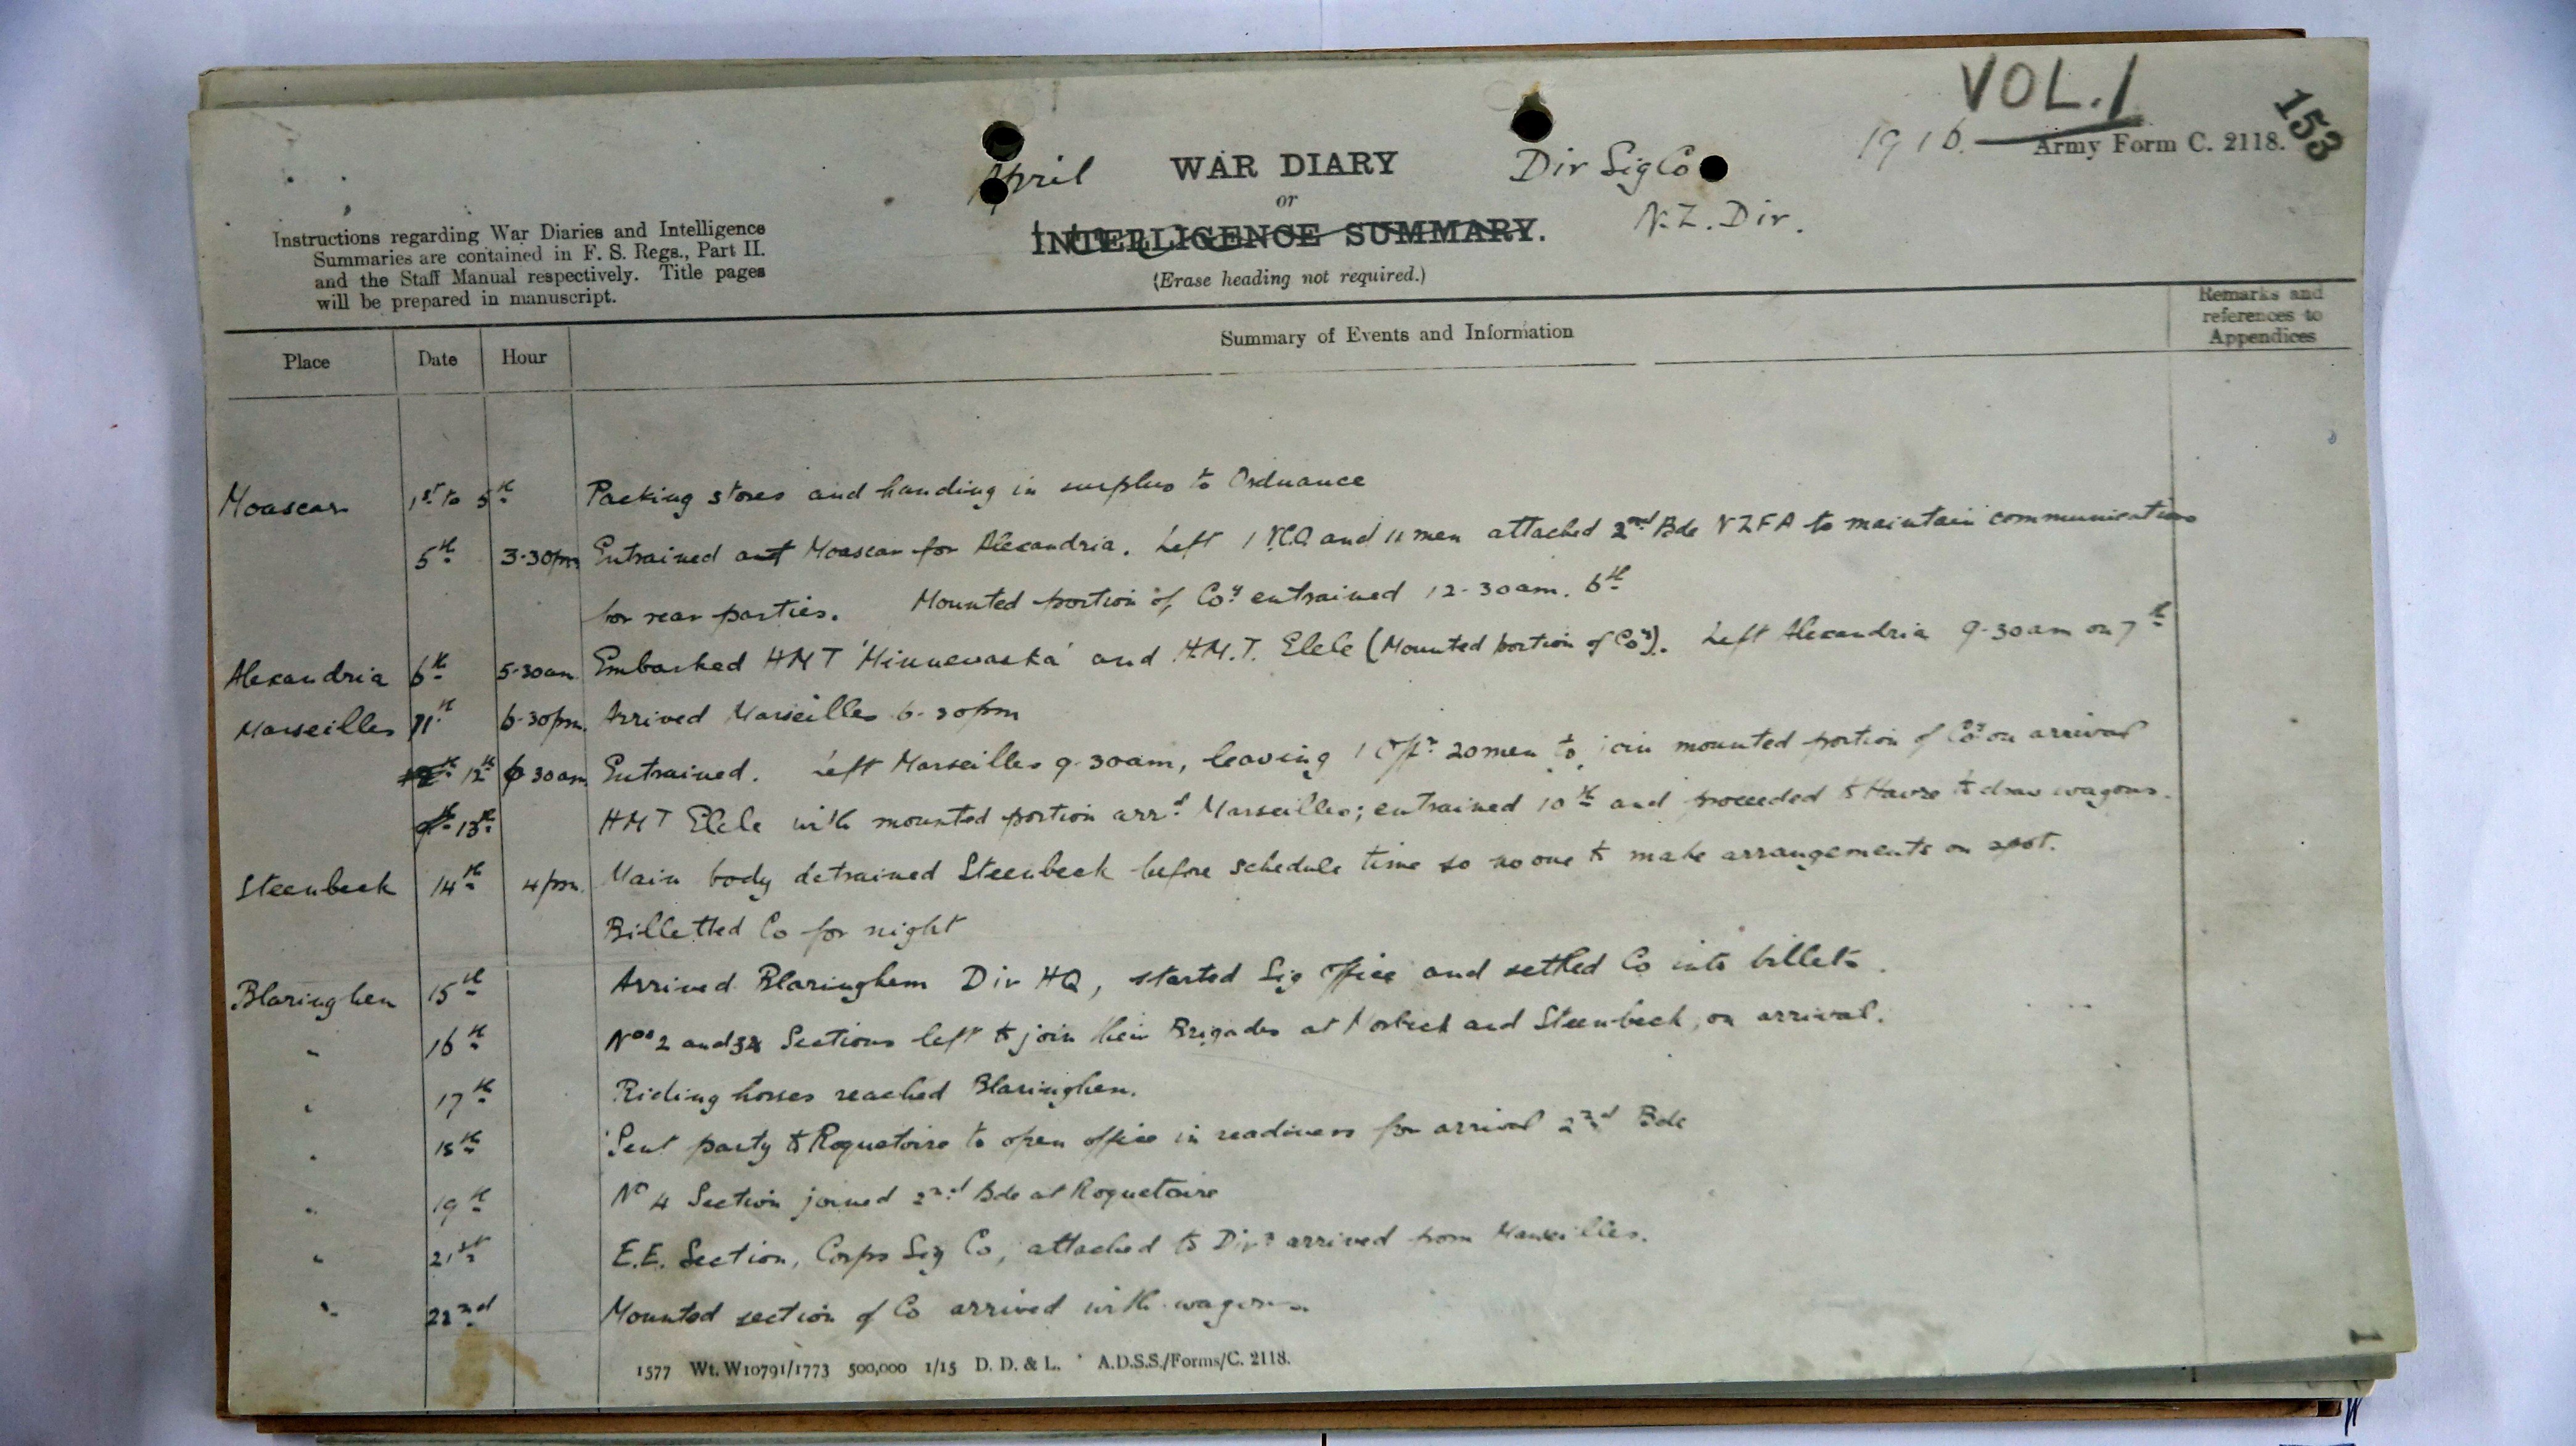 VOL. 1
153
1916. Army Form C. 2118.
April WAR DIARY Div Sig Co
or
INTELLIGENCE SUMMARY. N.Z. Div.
(Erase heading not required.)
Instructions regarding War Diaries and Intelligence
Summaries are contained in F. S. Regs., Part II.
and the Staff Manual respectively. Title pages
will be prepared in manuscript.
Place Date Hour Summary of Events and Information Remarks and
references to
Appendices
Moascar 1st to 5th Packing stores and handing in surplus to Ordnance
5th 3-30pm Entrained at Moascar for Alexandria. Left 1 NCO and 11 men attached 2nd Bde NZFA to maintain communications
for rear parties. Mounted portion of Coy entrained 12-30am. 6th
Alexandria 6th 5-30am Embarked HMT 'Minnewaska' and H.M.T. Elele (Mounted portion of Coy). Left Alexandria 9-30am on 7th
Marseilles 11th 6-30pm. Arrived Marseilles 6-30pm
12th 6 30am Entrained. Left Marseilles 9-30am, leaving 1 Offr 20men to join mounted portion of Coy on arrival
13th HMT Elele with mounted portion arrd Marseilles; entrained 10th and proceeded to Havre to draw wagons.
Steenbeck 14th 4pm. Main body detrained Steenbeck before schedule time so no one to make arrangements on spot.
Billetted Co for night
Blaringhen 15th Arrived Blaringhem Div HQ, started Sig Office and settled Co into billets.
" 16th Nos 2 and 3 Sections left to join their Brigades at Morbeck and Steenbeck, on arrival.
" 17th Riding horses reached Blaringhen.
" 18th Sent party to Roquetoire to open office in readiness for arrival 2nd Bde
" 19th No 4 Section joined 2nd Bde at Roquetoire
" 21st E.E. Section, Corps Sig Co, attached to Divn arrived from Marseilles.
" 22nd Mounted section of Co arrived with wagons.
1577 Wt. W10791/1773 500,000 1/15 D. D. & L. A.D.S.S./Forms/C. 2118.
1